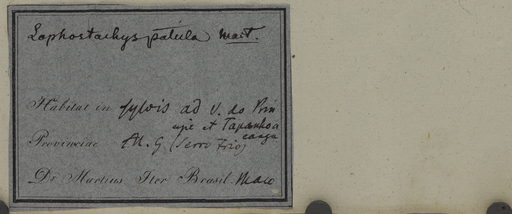 Lophostachys patula Mart.
Habitat in sylvis ad V. do Prin
cipe et Tapanhoa
canga
Provinciae M. G. (Serro Frio)
Dr Martius Iter Brasil. Maio